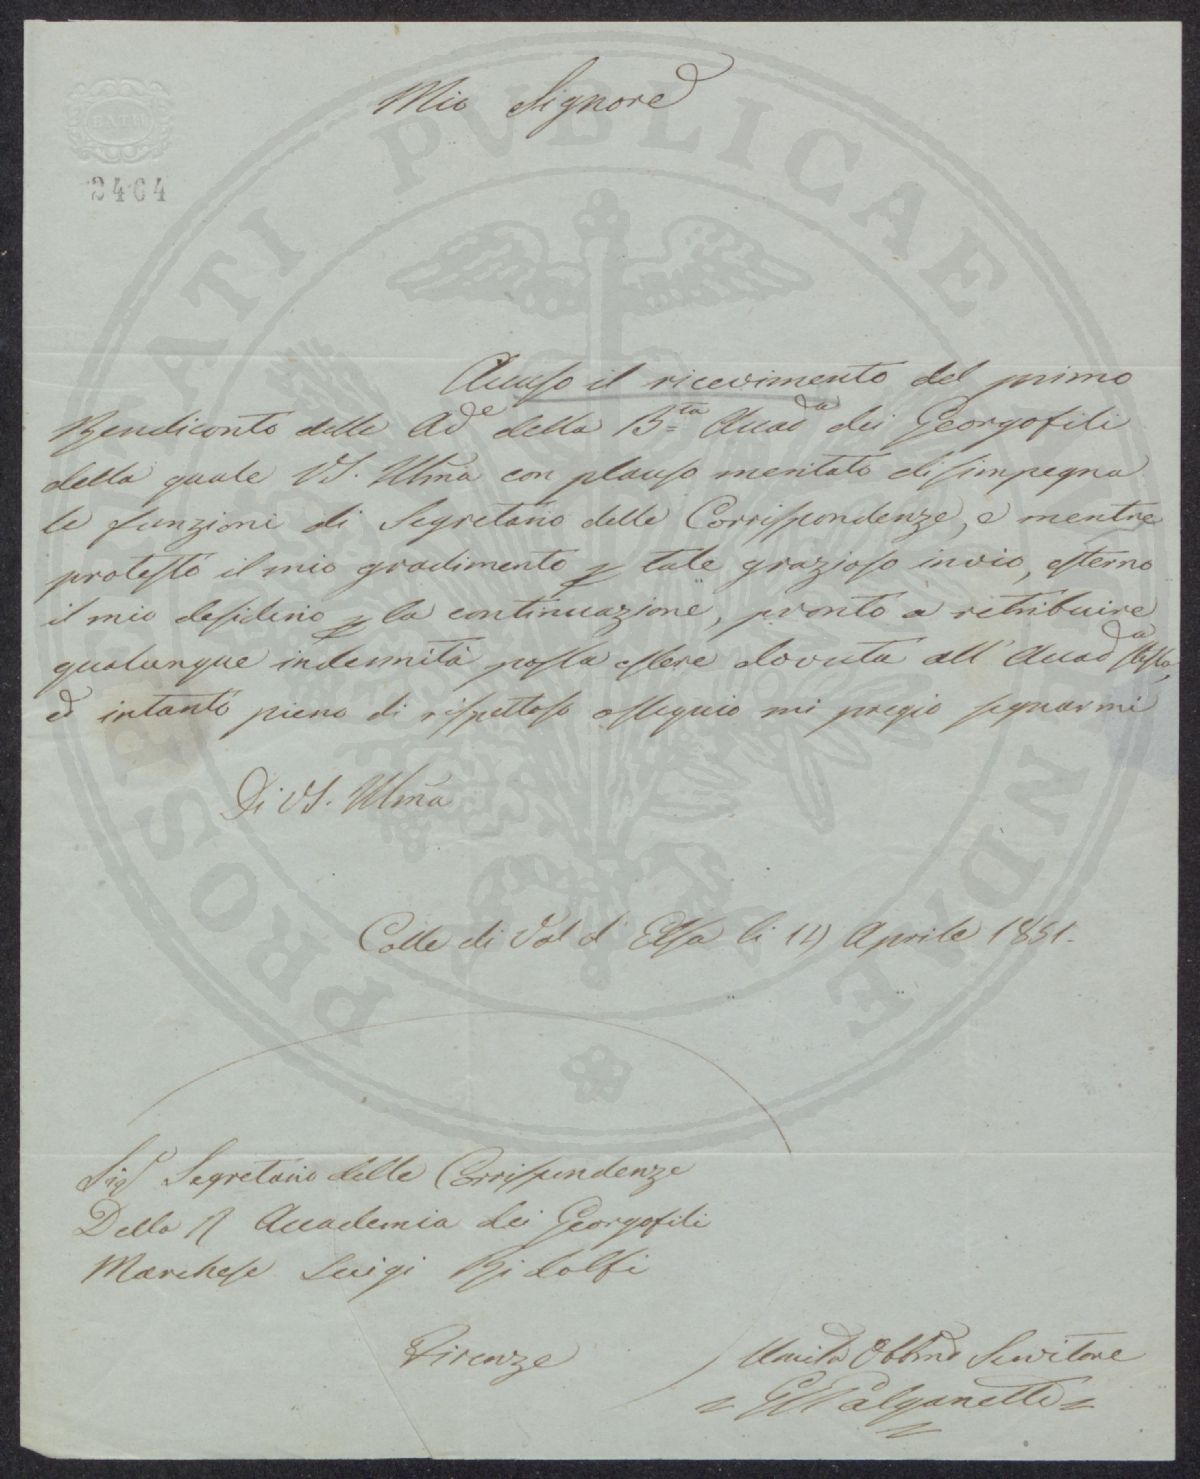 Mio Signore
BATH
2464
PROSPERITATI PUBLICAE AUGENDAE
Accuso il ricevimento del primo
Rendiconto delle Ad.e della R.ta Accad.a dei Georgofili
della quale VS. Illma con plauso meritato disimpegna
le funzioni di Segretario delle Corrispondenze, e mentre
protesto il mio gradimento p tale grazioso invio, esterno
il mio desiderio p la continuazione, pronto a retribuire
qualunque indennità possa essere dovuta all' Accad.a stessa,
ed intanto pieno di rispettoso ossequio mi pregio segnarmi
Di VS. Illma
Colle di Val d' Elsa li Aprile 1851.
Sig.r Segretario delle Corrispondenze
Della R Accademia dei Georgofili
Marchese Luigi Ridolfi
Firenze
Umilo Obbmo Servitore